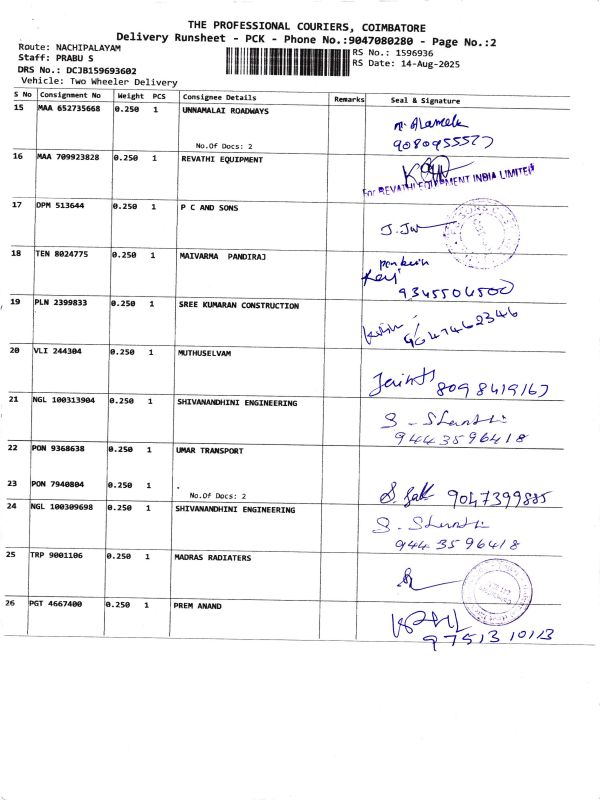 THE PROFESSIONAL COURIERS, COIMBATORE
Delivery Runsheet - PCK - Phone No.:9047080280 - Page No.:2
Route: NACHIPALAYAM
RS No.: 1596936
Staff: PRABU S
RS Date: 14-Aug-2025
DRS No.: DCJB159693602
Vehicle: Two Wheeler Delivery
S No Consignment No Weight PCS Consignee Details Remarks Seal & Signature
15 MAA 652735668 0.250 1 UNNAMALAI ROADWAYS
No.Of Docs: 2
16 MAA 709923828 0.250 1 REVATHI EQUIPMENT
For REVATHI EQUIPMENT INDIA LIMITED
17 DPM 513644 0.250 1 P C AND SONS
18 TEN 8024775 0.250 1 MAIVARMA PANDIRAJ
9345504500
19 PLN 2399833 0.250 1 SREE KUMARAN CONSTRUCTION
20 VLI 244304 0.250 1 MUTHUSELVAM
8098419167
21 NGL 100313904 0.250 1 SHIVANANDHINI ENGINEERING
9443596418
22 PON 9368638 0.250 1 UMAR TRANSPORT
23 PON 7940804 0.250 1
No.Of Docs: 2
9047399885
24 NGL 100309698 0.250 1 SHIVANANDHINI ENGINEERING
9443596418
25 TRP 9001106 0.250 1 MADRAS RADIATERS
26 PGT 4667400 0.250 1 PREM ANAND